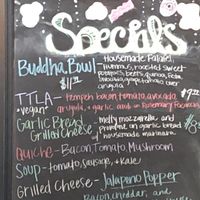 Specials
Buddha Bowl Housemade Falafel,
hummus, roasted sweet
potatoes, beets, quinoa, feta
arugula,
$11.00
TTLA - tempeh bacon, tomato, avocado,
arugula, + garlic aioli on Rosemary Focaccia
*vegan* $9.00
Garlic Bread - melty mozzarella, and
Grilled Cheese provolone on garlic bread
housemade marinara
Quiche - Bacon, Tomato, Mushroom
Soup - tomato, sausage, + Kale
Grilled Cheese - Jalapeno Popper
Bacon, cheddar, and